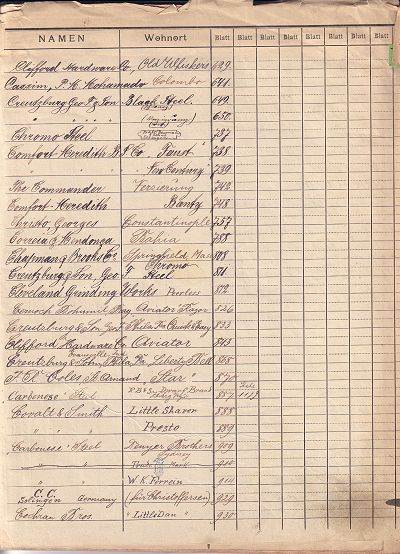 NAMEN Wohnort Blatt Blatt Blatt Blatt Blatt Blatt Blatt Blatt
Clifford Hardware Co, Old Whiskers 629
Cassim, P. K. Mohamado Colombo 641
Creutzburg Geo F & Son Black Steel 649
" " " " 650
Chromo Steel 737
Comfort Meredith B F Co, Faust 738
" New Century 739
The Commander Verzierung 742
Comfort Meredith Banty 748
Christo Georges Constantinople 757
Correia & Mendonça Bahia 788
Chapman & Brooks Co Springfield, Mass 808
Creutzburg & Son, Geo F Chromo Steel 811
Cleveland Grinding Works Peerless 812
Bohumil Aviator Major 826
Creutzburg & Son Geo F Phila Pa 833
Clifford Hardware Co Aviator 843
Creutzburg & Phila Pa Liberty Bell 868
St Amand, Star 870
Carbonese Steel 887
Covalt & Smith Little Shaver 888
" Presto 889
Carbonese Steel Denyer Brothers Sydney 909
" " Trade Mark 910
" " W. K. Perrein 911
C. C. Esslingen Germany (für Christoffersen) 929
Cochran Bros. "Little Dan" 930